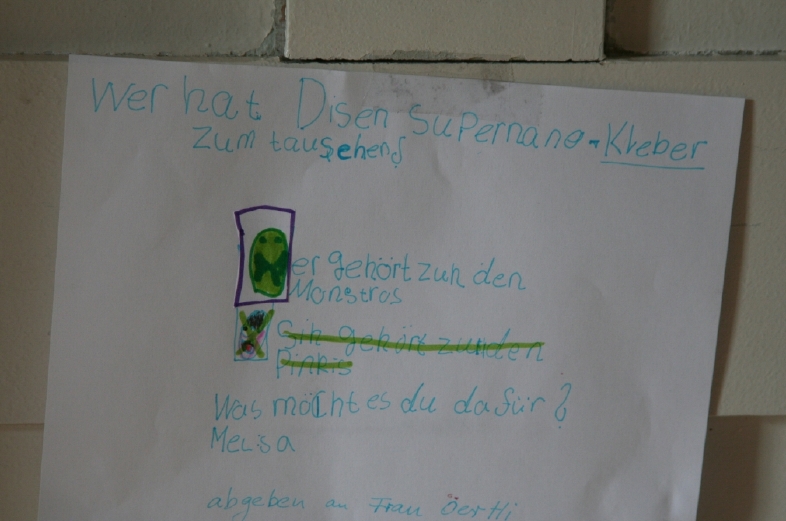 Wer hat Disen Supernano-Kleber
zum tauschen?
er gehört zuh den
Monstros
Sih gehört zu den
Pinkis
Was möchtes du dafür?
Melisa
abgeben an Frau Oertli